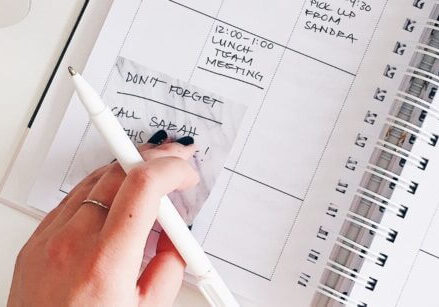 9:30
PICK UP
FROM
SANDRA
12:00-1:00
LUNCH
TEAM
MEETING
DON'T FORGET
CALL SARAH
THS
!